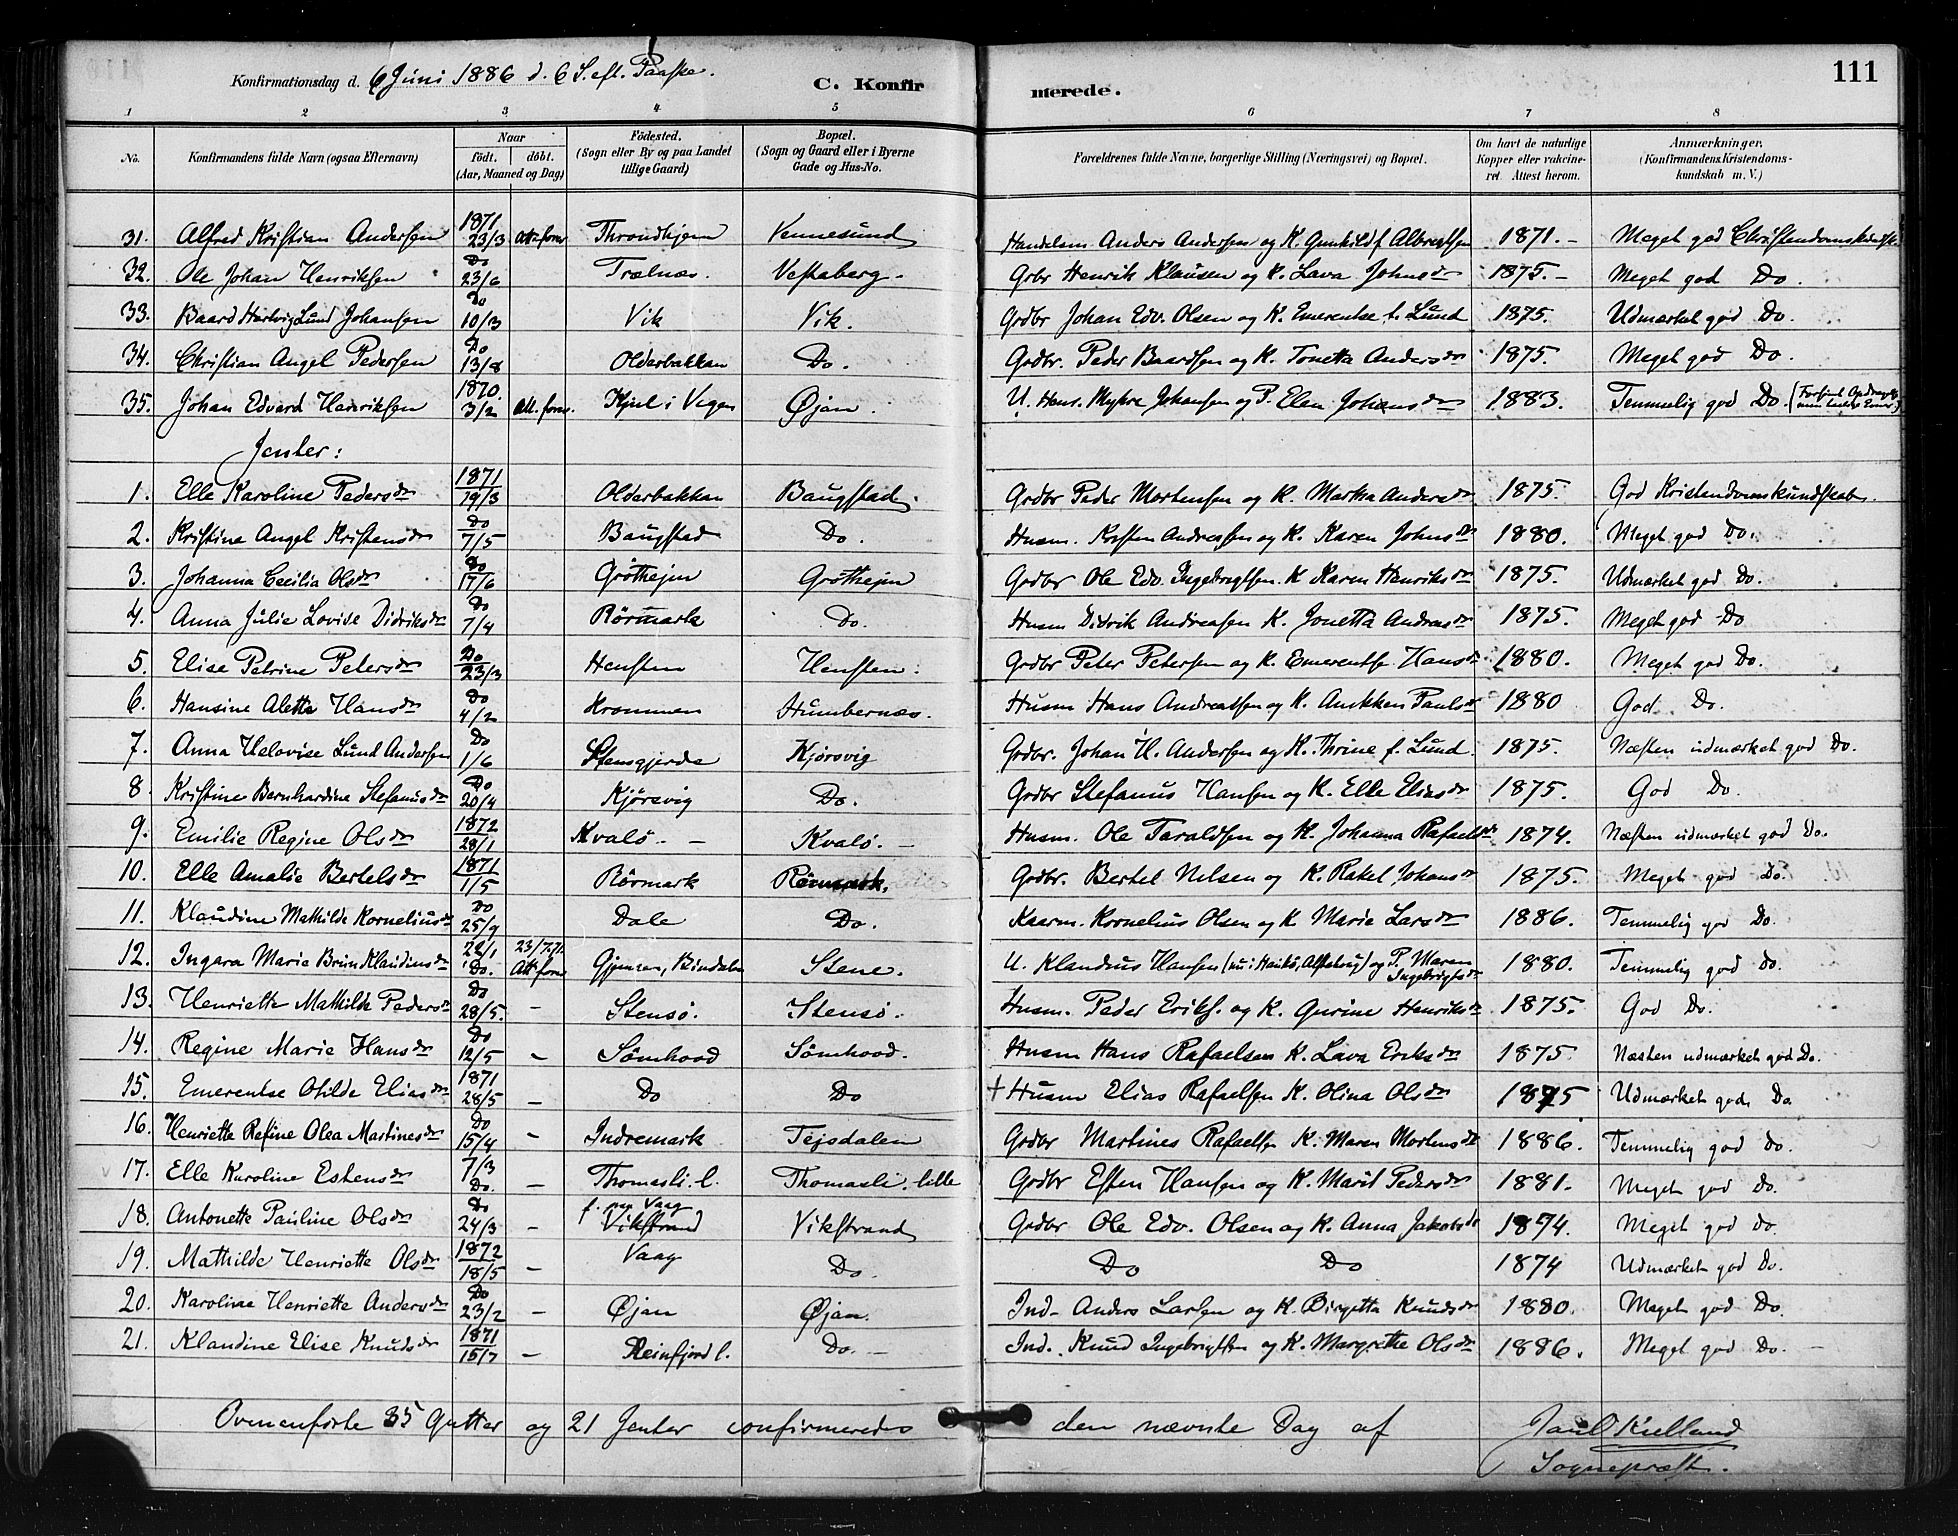 111
Konfirmationsdag d. 6 Juni 1886 d. 6 S. eft. Paaske.
C. Konfirmerede.
1 2 3 4 5 6 7 8
No. | Konfirmandens fulde Navn (ogsaa Efternavn) | Naar født. døbt. (Aar, Maaned og Dag) | Fødested. (Sogn eller By og paa Landet tillige Gaard) | Bopæl. (Sogn og Gaard eller i Byerne Gade og Hus-No. | Forældrenes fulde Navne, borgerlige Stilling (Næringsvei) og Bopæl. | Om havt de naturlige Kopper eller vakcineret. Attest herom. | Anmærkninger. (Konfirmandens Kristendomskundskab m. V.)
31. Alfred Kristian Andersen 1871 23/3 Att. forev. Throndhjem Vennesund Handelsm. Anders Andersen og K. Gunhild f. Albregtsen 1871. - Meget god Christendomskundsk.
32. Ole Johan Henriksen Do 23/6 Trælnæs. Vestaberg. Grbr Henrik Klausen og K. Lava Johnsdr 1875. - Meget god Do.
33. Baard Hartvig Lund Johansen Do 10/3 Vik Vik. Grdbr Johan Edv. Olsen og K. Emerentse f. Lund 1875. Udmærket god Do.
34. Christian Angel Pedersen Do 13/8 Olderbakkan Do. Grdbr. Peder Baardsen og K. Tonetta Andersdr 1875. Meget god Do.
35. Johan Edvard Henriksen 1870. 3/2 Att. forev. Kjul i Vegen Øjan. U. Henr. Myhre Johansen og P. Elen Johansdr 1883. Temmelig god Do.
Jenter:
1. Elle Karoline Pedersdr 1871 19/3 Olderbakkan Baugstad. Grdbr Peder Mortensen og K. Martha Andersdr 1875. God Kristendomskundskab.
2. Kristine Angel Kristensdr Do 7/5 Baugstad Do. Husm. Kristen Andreassen og K. Karen Johnsdr 1880. Meget god Do.
3. Johanna Cecilia Olsdr Do 17/6 Grøthejm Grøthejm Grdbr Ole Edv. Ingebrigtsen. K. Karen Henriksdr 1875. Udmærket god Do.
4. Anna Julie Lovise Didriksdr Do 7/4 Rørmark Do. Husm Didrik Andreasen K. Jonetta Andreasdr 1875. Meget god Do
5. Elise Petrine Petersdr Do 23/3 Hensten Hensten. Grdbr Peter Petersen og K. Emerentse Hansdr 1880. Meget god Do.
6. Hansine Aletta Hansdr Do 4/2 Krommen Humbernæs. Husm Hans Andreassen og K. Anikken Paulsdr 1880 God Do.
7. Anna Helovise Lund Andersen Do 1/6 Stensgjerde Kjørsvig Grdbr. Johan H. Andersen og K. Thrine f. Lund. 1875. Næsten udmærket god Do.
8. Kristine Bernhardine Stefanusdr Do 20/4 Kjørsvig Do. Grdbr Stefanus Hansen og K. Elle Eliasdr 1875. God Do.
9. Emilie Regine Olsdr 1872 28/1 Kvalø. - Kvalø. - Husm. Ole Taraldsen og K. Johanna Rafaelsdr 1874. Næsten udmærket god Do.
10. Elle Amalie Bertelsdr 1871 1/5 Rørmark Rørmark. Grdbr. Bertel Nilsen og K. Rakel Johansdr 1875. Meget god Do.
11. Klaudine Mathilde Korneliusdr Do 25/9 Dale Do. Kaarm. Kornelius Olsen og K Marie Larsdr 1886. Temmelig god Do.
12. Ingara Marie Brun Klaudiusdr 22/1 Do. 23/7.71. Att. forev Bindalen Stene. U. Klaudius Hansen og P. Maren Ingebrigtsdr 1880. Temmelig god Do.
13. Henriette Mathilde Pedersdr Do 28/5. - Stensø. Stensø. Husm. Peder Eriks. og K. Gurine Henriksdr 1875. God Do.
14. Regine Marie Hansdr Do 12/5 - Sømhovd Sømhovd. Husm Hans Rafaelsen K. Lava Eriksdr 1875. Næsten udmærket god Do.
15. Emerentse Otilde Eliasdr 1871 28/5 - Do Do + Husm Elias Rafaelsen K. Olina Olsdr 1875 Udmærket god Do
16. Henriette Refine Olea Martinesdr Do 15/4 - Indremark Tejsdalen Grdbr Martines Rafaels. K. Maren Mortensdr 1886. Temmelig god Do.
17. Elle Karoline Estensdr 7/3 Do. - Thomasli. l. Thomasli. lille Grdbr Esten Hansen og K. Marit Pedersdr 1881. Meget god Do.
18. Antonette Pauline Olsdr Do 24/3 - f. paa Vaag Vikstrand Vikstrand Grdbr Ole Edv. Olsen og K. Anna Jakobsdr 1874. Meget god Do
19. Mathilde Henriette Olsdr 1872 18/5 - Vaag Do. Do Do 1874 Udmærket god Do.
20. Karoline Henriette Andersdr Do 23/2 - Øjan Øjan. Ind- Anders Larsen og K. Birgitta Knudsdr 1880. Meget god Do
21. Klaudine Elise Knudsdr 1871 15/7 - Reinfjord l. Do. - Ind. Knud Ingebrigtsen og K. Margrethe Olsdr 1886. Meget god Do. -
Ovmenførte 35 Gutter og 21 Jenter confirmeredes den nævnte Dag af Paul Kielland
Sognepræst.